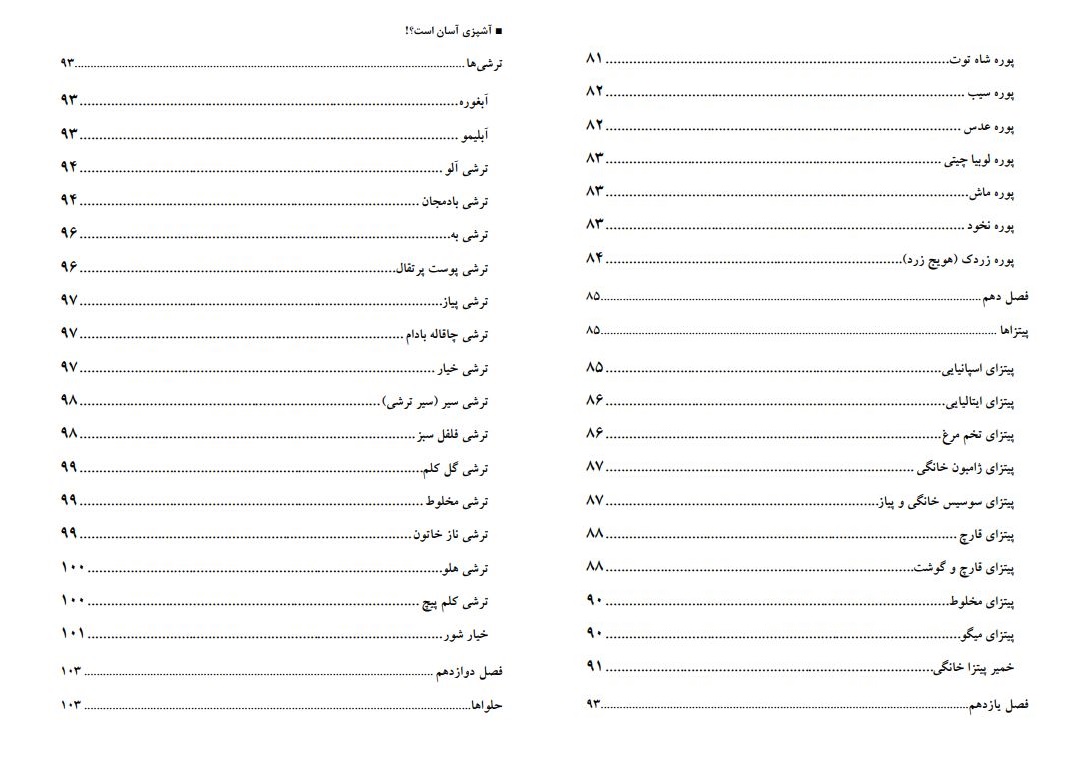 پوره شاه توت....................................................................................۸۱
پوره سیب ....................................................................................۸۲
پوره عدس ....................................................................................۸۲
پوره لوبیا چیتی ....................................................................................۸۳
پوره ماش....................................................................................۸۳
پوره نخود ....................................................................................۸۳
پوره زردک (هویج زرد)....................................................................................۸۴
فصل دهم....................................................................................۸۵
پیتزاها ....................................................................................۸۵
پیتزای اسپانیایی....................................................................................۸۵
پیتزای ایتالیایی....................................................................................۸۶
پیتزای تخم مرغ....................................................................................۸۶
پیتزای ژامبون خانگی ....................................................................................۸۷
پیتزای سوسیس خانگی و پیاز....................................................................................۸۷
پیتزای قارچ ....................................................................................۸۸
پیتزای قارچ و گوشت....................................................................................۸۸
پیتزای مخلوط....................................................................................۹۰
پیتزای میگو....................................................................................۹۰
خمیر پیتزا خانگی....................................................................................۹۱
فصل یازدهم....................................................................................۹۳
■ آشپزی آسان است؟!
ترشی‌ها....................................................................................۹۳
آبغوره....................................................................................۹۳
آبلیمو ....................................................................................۹۳
ترشی آلو ....................................................................................۹۴
ترشی بادمجان ....................................................................................۹۴
ترشی به....................................................................................۹۶
ترشی پوست پرتقال....................................................................................۹۶
ترشی پیاز....................................................................................۹۷
ترشی چاقاله بادام ....................................................................................۹۷
ترشی خیار ....................................................................................۹۷
ترشی سیر (سیر ترشی)....................................................................................۹۸
ترشی فلفل سبز ....................................................................................۹۸
ترشی گل کلم....................................................................................۹۹
ترشی مخلوط ....................................................................................۹۹
ترشی ناز خاتون ....................................................................................۹۹
ترشی هلو....................................................................................۱۰۰
ترشی کلم پیچ ....................................................................................۱۰۰
خیار شور....................................................................................۱۰۱
فصل دوازدهم ....................................................................................۱۰۳
حلواها....................................................................................۱۰۳